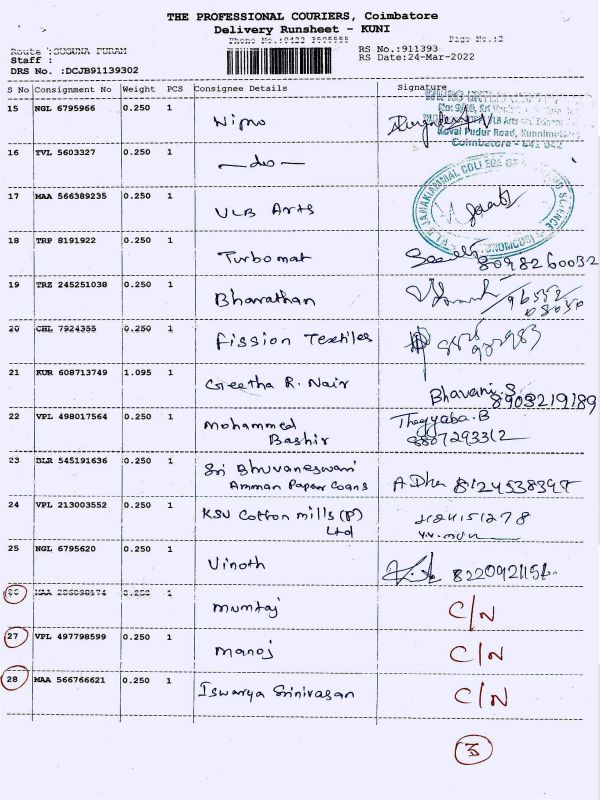 THE PROFESSIONAL COURIERS, Coimbatore
Delivery Runsheet - KUNI
Page No.:2
Route :SUGUNA PURAM
Staff :
DRS No. :DCJB91139302
RS No.:911393
RS Date:24-Mar-2022
S No Consignment No Weight PCS Consignee Details Signature
15 NGL 6795966 0.250 1
Kovai Pudur Road, Kunnimuthur
Coimbatore - 641 042
16 TVL 5603327 0.250 1 -do-
17 MAA 566389235 0.250 1 VLB Arts
18 TRP 8191922 0.250 1 Turbomat 8098260032
19 TRZ 245251038 0.250 1 Bharathan
20 CHL 7924355 0.250 1 Fission Textiles
21 KUR 608713749 1.095 1 Geetha R. Nair Bhavani.S
8903219189
22 VPL 498017564 0.250 1 Mohammed Bashir Thayyaba.B
8807293312
23 BLR 545191636 0.250 1 Sri Bhuvaneswari
Amman Paper Coans
24 VPL 213003552 0.250 1 KSV Cotton mills (P)
Ltd
25 NGL 6795620 0.250 1 Vinoth
26 0.250 1 Mumtaj C/N
27 VPL 497798599 0.250 1 Manoj C/N
28 MAA 566766621 0.250 1 Iswarya Srinivasan C/N
3